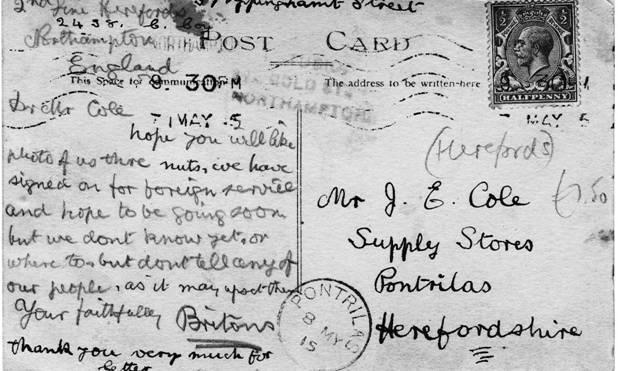 2nd Line Herefords
2438. B Coy
Northampton
England
Street
POST CARD
This Space for Communication
The address to be written here
HALFPENNY
9 30 PM
7 MAY 15
NORTHAMPTON
Dear Mr Cole
hope you will like
photo of us three nuts, we have
signed on for foreign service
and hope to be going soon
but we dont know yet, or
where to, but dont tell any of
our people, as it may upset them
Your faithfully Britons
thank you very much for
letter
(Herefords)
£7.50
Mr J. E. Cole
Supply Stores
Pontrilas
Herefordshire
PONTRILAS
8 MY
15